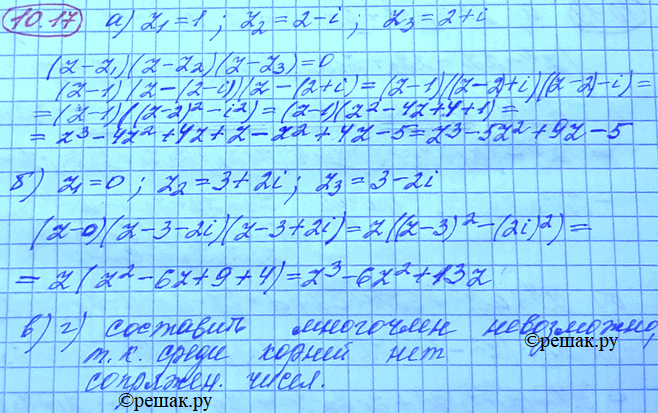 10.17 а) z₁=1; z₂=2-i; z₃=2+i
(z-z₁)(z-z₂)(z-z₃)=0
(z-1)(z-(2-i)(z-(2+i)=(z-1)(z-2)+i)(z-2)-i)=
=(z-1)((z-2)²-i²)=(z-1)(z²-4z+4+1)=
=z³-4z²+4z+z-z²+4z-5=z³-5z²+9z-5
б) z₁=0; z₂=3+2i; z₃=3-2i
(z-0)(z-3-2i)(z-3+2i)=z((z-3)²-(2i)²)=
=z(z²-6z+9+4)=z³-6z²+13z
в) г) составить многочлен невозможно,
т.к. среди корней нет
©решак.ру
сопряжен. чисел.
©решак.ру